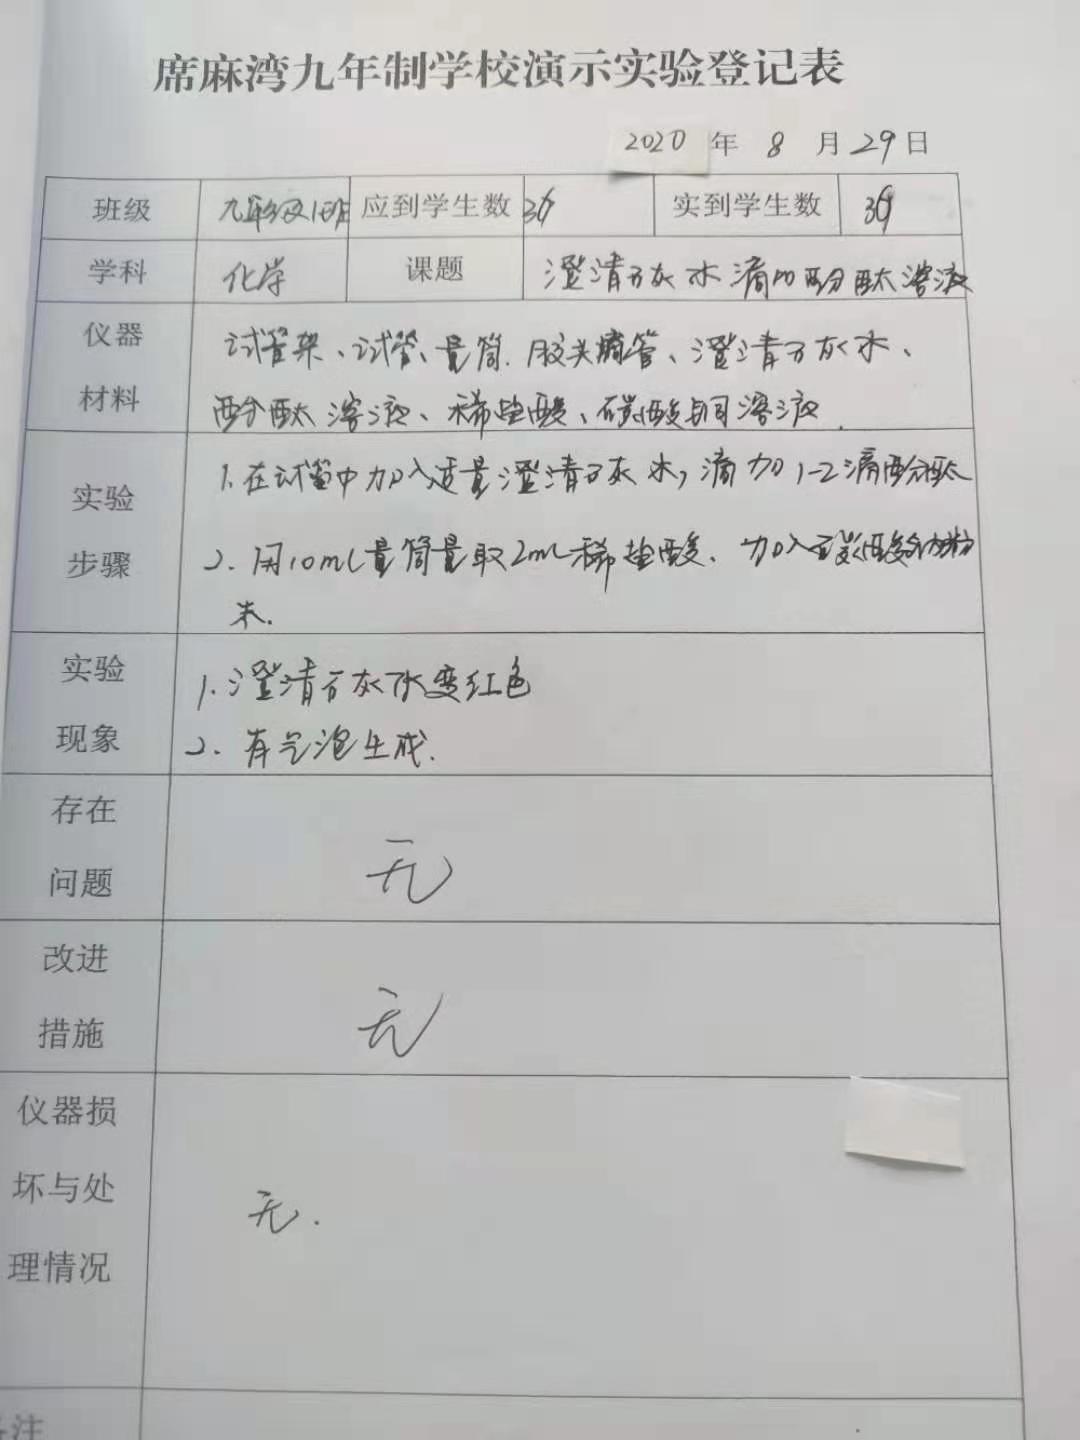 席麻湾九年制学校演示实验登记表
2020 年 8 月 29 日
班级 九年级1班 应到学生数 实到学生数
学科 化学 课题 澄清石灰水滴加酚酞溶液
仪器 试管架、试管、量筒、胶头滴管、澄清石灰水、
材料 酚酞溶液、稀盐酸、碳酸钠溶液.
实验 1.在试管中加入适量澄清石灰水,滴加1-2滴酚酞
步骤 2.用10mL量筒量取2mL稀盐酸.加入碳酸钠粉
末.
实验 1.澄清石灰水变红色
现象 2.有气泡生成.
存在
问题 无
改进
措施 无
仪器损
坏与处 无.
理情况
注